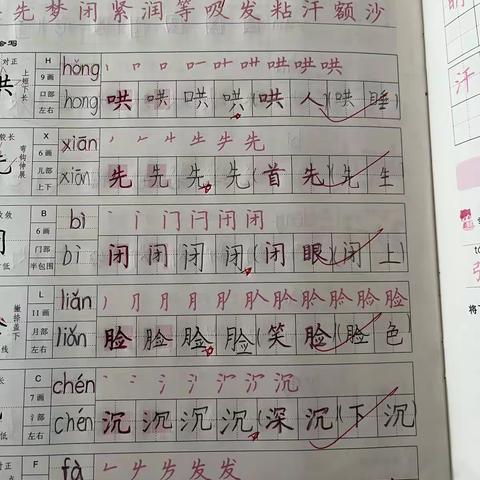 先梦闭紧润等吸发粘汗额沙
会写
对正
上短下长
H
9画
口部
左右
hǒng
hong
哄哄哄哄(哄人)(哄睡)
较长
弯钩伸展
X
6画
儿部
上下
xiān
xiān
先先先先(首先)(先生)
B
6画
门部
半包围
bì
bì
闭闭闭闭(闭眼)(闭上)
撇捺盖下
L
11画
月部
左右
liǎn
liǎn
脸脸脸脸(笑脸)(脸色)
C
7画
氵部
左右
chén
chén
沉沉沉沉(深沉)(下沉)
F
fà
发发
汗